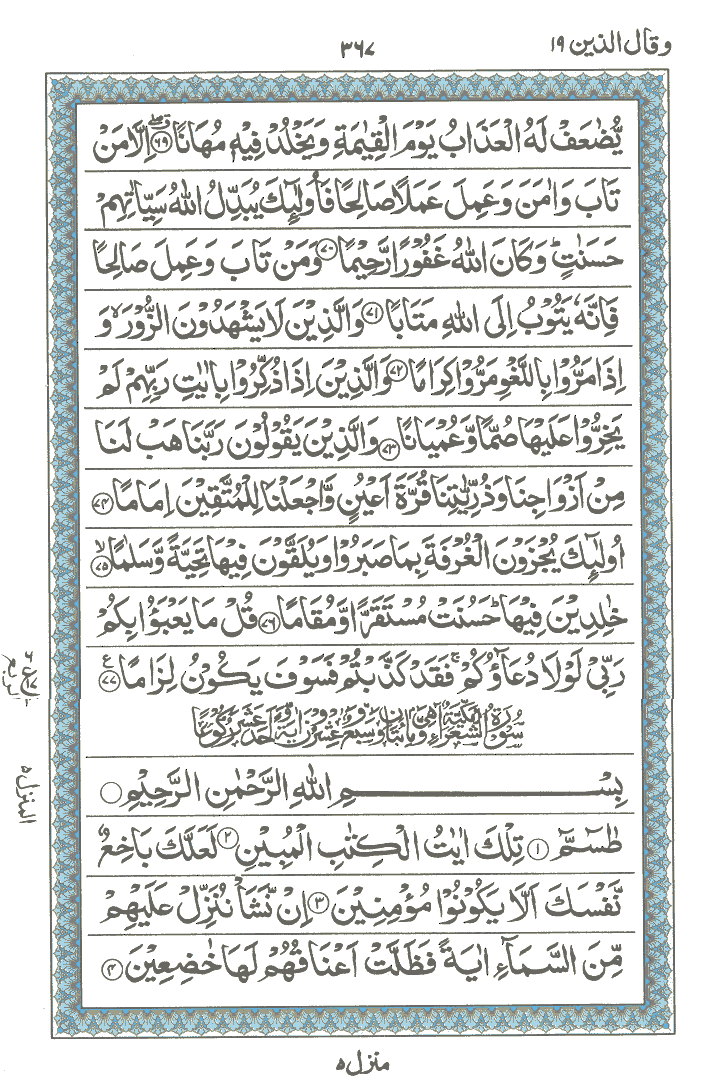 وقال الذين ١٩
٣٦٧
يُّضٰعَفْ لَهُ الْعَذَابُ يَوْمَ الْقِيٰمَةِ وَيَخْلُدْ فِيْهٖ مُهَانًا ﴿٦٩﴾ اِلَّا مَنْ
تَابَ وَاٰمَنَ وَعَمِلَ عَمَلًا صَالِحًا فَاُولٰٓئِكَ يُبَدِّلُ اللّٰهُ سَيِّاٰتِهِمْ
حَسَنٰتٍ ؕ وَكَانَ اللّٰهُ غَفُوْرًا رَّحِيْمًا ﴿٧٠﴾ وَمَنْ تَابَ وَعَمِلَ صَالِحًا
فَاِنَّهٗ يَتُوْبُ اِلَى اللّٰهِ مَتَابًا ﴿٧١﴾ وَالَّذِيْنَ لَا يَشْهَدُوْنَ الزُّوْرَ ۙ وَ
اِذَا مَرُّوْا بِاللَّغْوِ مَرُّوْا كِرَامًا ﴿٧٢﴾ وَالَّذِيْنَ اِذَا ذُكِّرُوْا بِاٰيٰتِ رَبِّهِمْ لَمْ
يَخِرُّوْا عَلَيْهَا صُمًّا وَّعُمْيَانًا ﴿٧٣﴾ وَالَّذِيْنَ يَقُوْلُوْنَ رَبَّنَا هَبْ لَنَا
مِنْ اَزْوَاجِنَا وَذُرِّيّٰتِنَا قُرَّةَ اَعْيُنٍ وَّاجْعَلْنَا لِلْمُتَّقِيْنَ اِمَامًا ﴿٧٤﴾
اُولٰٓئِكَ يُجْزَوْنَ الْغُرْفَةَ بِمَا صَبَرُوْا وَيُلَقَّوْنَ فِيْهَا تَحِيَّةً وَّسَلٰمًا ۙ ﴿٧٥﴾
خٰلِدِيْنَ فِيْهَا ؕ حَسُنَتْ مُسْتَقَرًّا وَّمُقَامًا ﴿٧٦﴾ قُلْ مَا يَعْبَؤُا بِكُمْ
رَبِّيْ لَوْلَا دُعَآؤُكُمْ ۚ فَقَدْ كَذَّبْتُمْ فَسَوْفَ يَكُوْنُ لِزَامًا ﴿٧٧﴾ ع
سُوْرَةُ الشُّعَرَآءِ مَكِّيَّةٌ وَّهِيَ مِائَتَانِ وَسَبْعٌ وَّعِشْرُوْنَ اٰيَةً وَّاَحَدَ عَشَرَ رُكُوْعًا
بِسْمِ اللّٰهِ الرَّحْمٰنِ الرَّحِيْمِ
طٰسٓمّٓ ﴿١﴾ تِلْكَ اٰيٰتُ الْكِتٰبِ الْمُبِيْنِ ﴿٢﴾ لَعَلَّكَ بَاخِعٌ
نَّفْسَكَ اَلَّا يَكُوْنُوْا مُؤْمِنِيْنَ ﴿٣﴾ اِنْ نَّشَاْ نُنَزِّلْ عَلَيْهِمْ
مِّنَ السَّمَآءِ اٰيَةً فَظَلَّتْ اَعْنَاقُهُمْ لَهَا خٰضِعِيْنَ ﴿٤﴾
المنزل ٥
منزل ٥